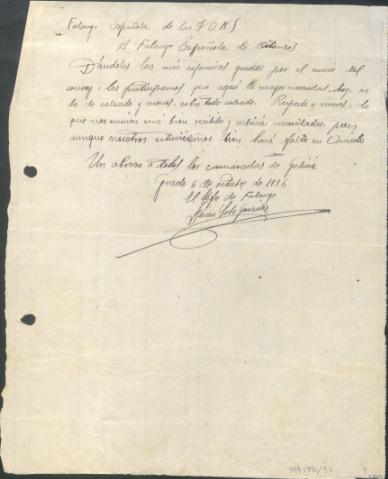 Falange Española de las J O N S
A Falange Española de Betanzos
Dándoles las más expresivas gracias por el envío del
convoy i les participamos que aquí la mayor necesidad, hoy, es
la de calzado y mantas, sobre todo calzado. Respecto a víveres, lo
que nos envíen será bien recibido y cubrirá necesidades, pues
aunque nosotros estuviésemos bien, hará falta en Oviedo
Un abrazo a todos los camaradas de Galicia
Grado 6 de octubre de 1936
El Jefe de Falange
González